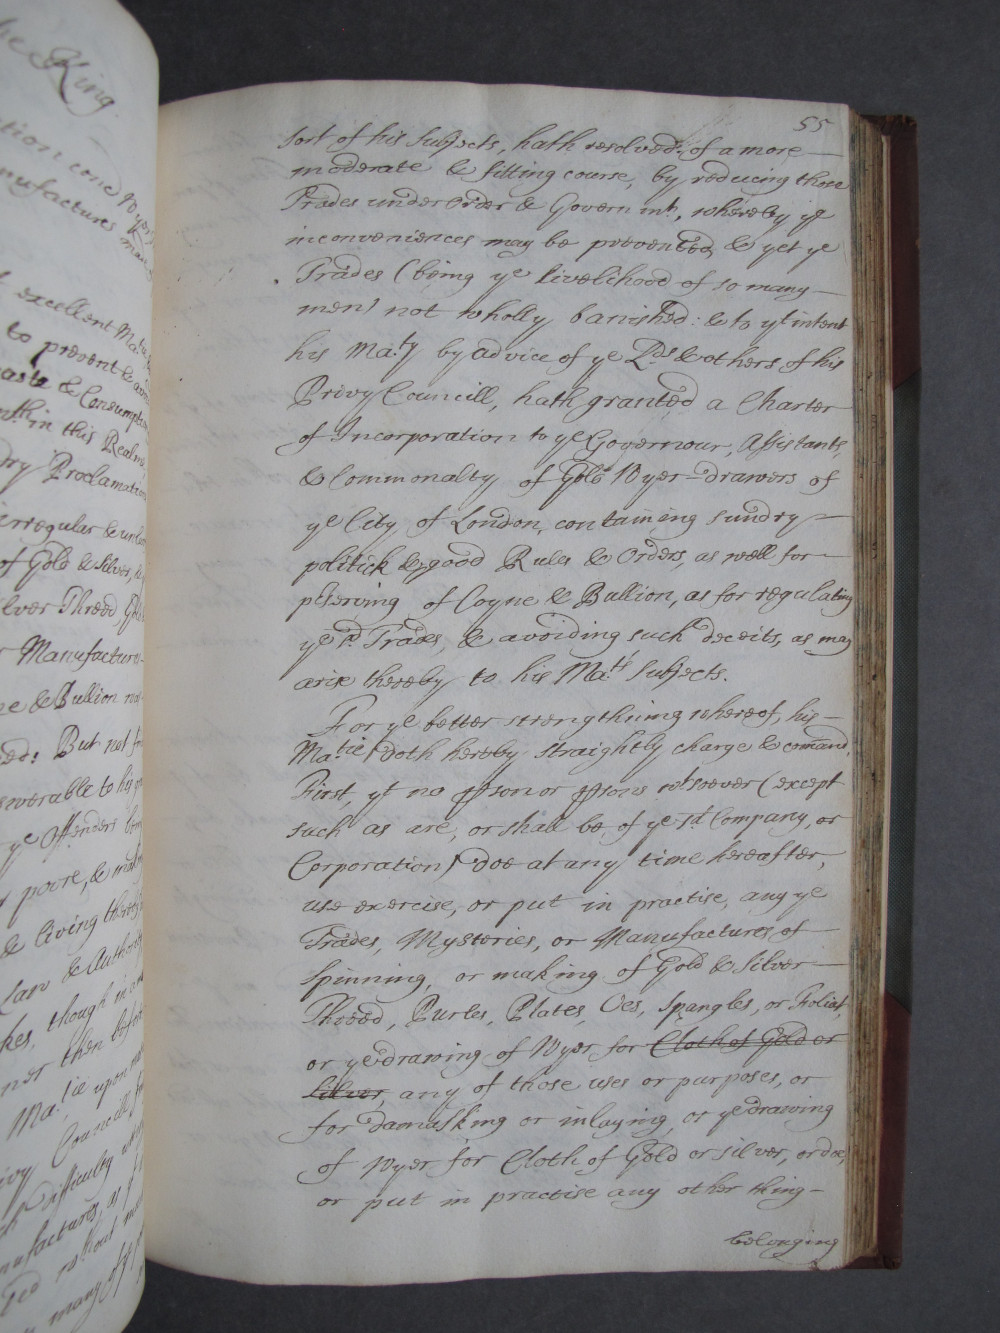 he King.
ation conc Wyer
nufactures man
t excellent Ma.tie
to prevent &
aste & Consumption
in this Realm,
dry Proclamations
irregular &
of Gold & Silver,
ilver Threed
r Manufactures
ne & Bullion
: But not
swerable to his
ye Offenders
poore, &
& living thereby
Law & Authority
kes, though in
ner then before
Ma.tie upon
ivy Councill
Difficulty
nufactures, as
ted without
many
55
sort of his Subjects, hath resolved of a more
moderate & fitting course, by reducing those
Trades under Order & Governmt, whereby ye
inconveniences may be prevented, & yet ye
Trades (being ye livelihood of so many
men) not wholly banished: & to yt intent
his Ma.ty by advice of ye Lds & others of his
Privy Councill, hath granted a Charter
of Incorporation to ye Governour, Assistants,
& Commonalty of Gold Wyer-drawers of
ye City of London, containing sundry
politick & good Rules & Orders, as well for
pserving of Coyne & Bullion, as for regulating
ye sd Trades, & avoiding such deceits, as may
arise thereby to his Ma.ts Subjects.
For ye better strengthning whereof, his
Ma.tie doth hereby straightly charge & comand,
First, yt no pson or psons wtsoever (except
such as are, or shall be, of ye sd Company, or
Corporation) doe at any time hereafter,
use exercise, or put in practise, any ye
Trades, Mysteries, or Manufactures of
spinning, or making of Gold & Silver
Threed, Purles, Plates, Oes, Spangles, or Foliat,
or ye drawing of Wyer for Cloth of Gold or
Silver, any of those uses or purposes, or
for damasking or inlaying, or ye drawing
of Wyer for Cloth of Gold or silver, or doe,
or put in practise any other thing
belonging